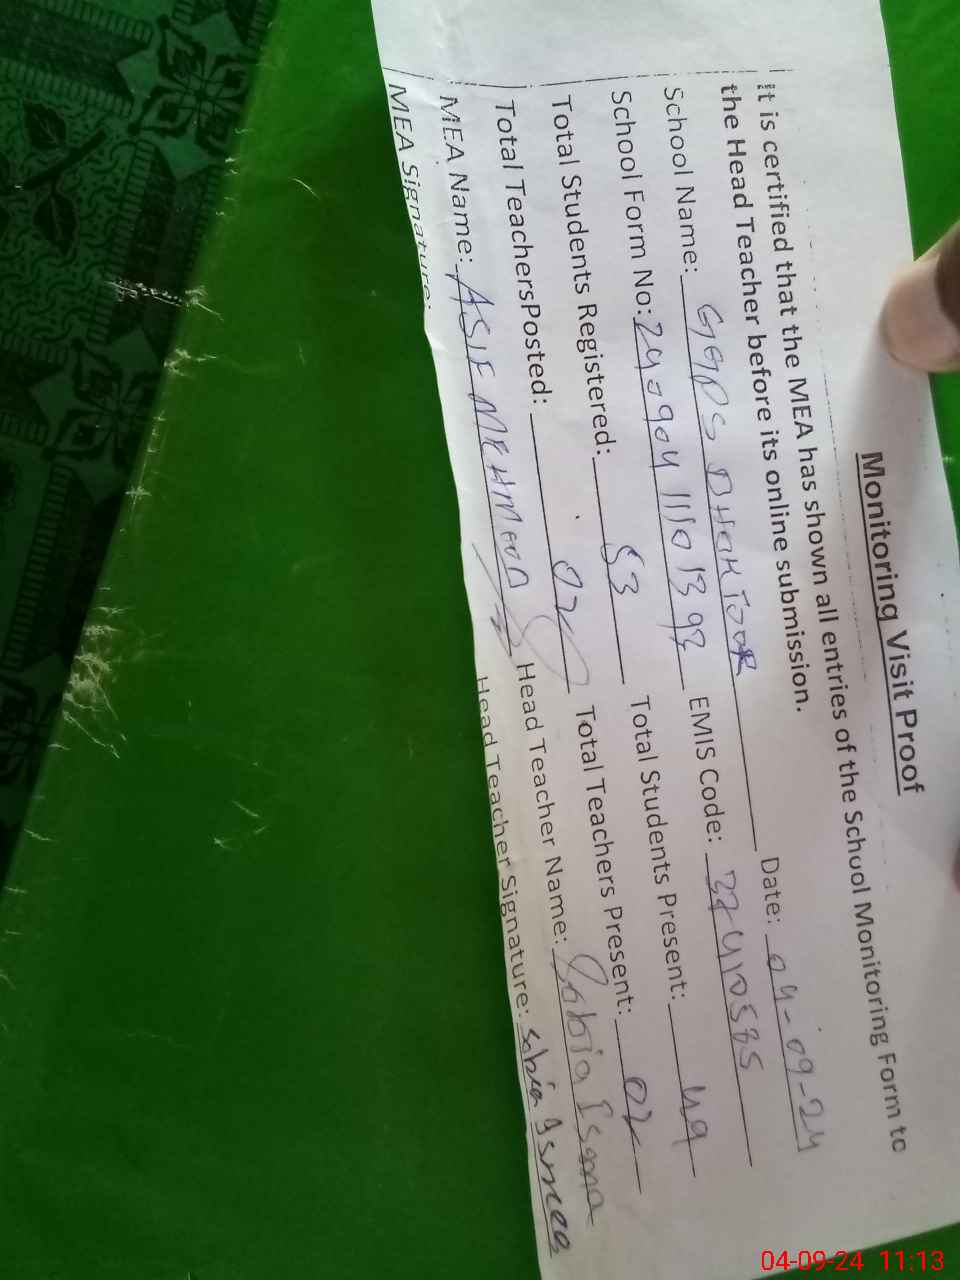 Monitoring Visit Proof
it is certified that the MEA has shown all entries of the School Monitoring Form to
the Head Teacher before its online submission.
School Name: GGPS DHOK TOOR Date: 04-09-24
School Form No: EMIS Code:
Total Students Registered: 53 Total Students Present: 49
Total TeachersPosted: 02 Total Teachers Present: 02
MEA Name: ASIF MEHMOOD Head Teacher Name: Sobia Isma
MEA Signature: Head Teacher Signature: Sobia
04-09-24 11:13